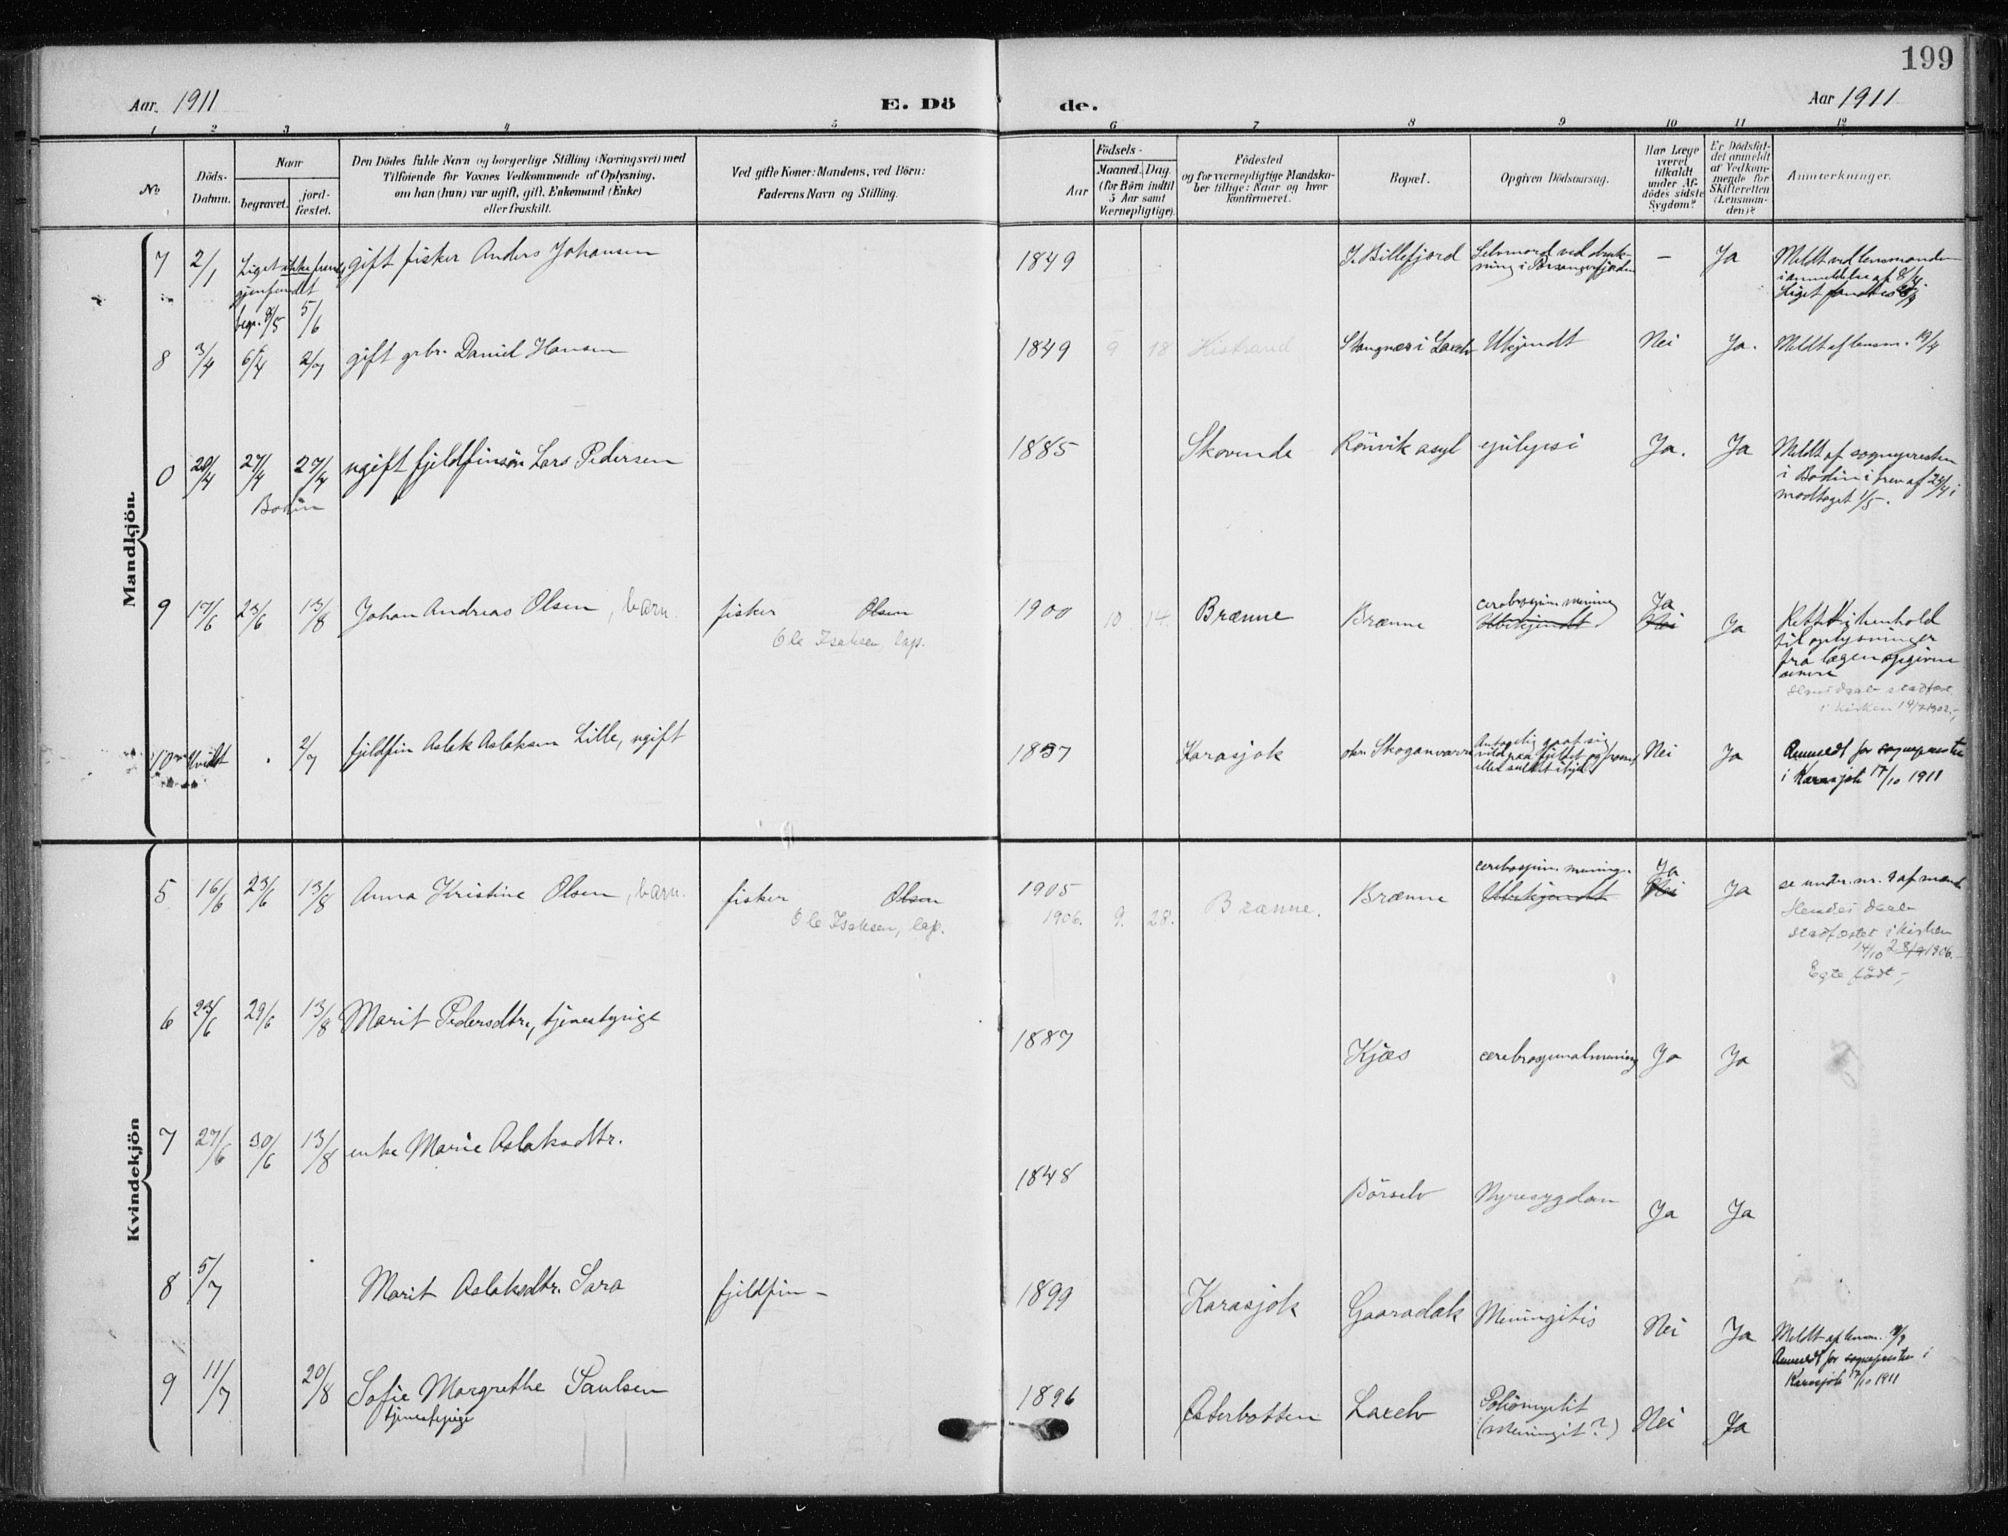 199
Aar 1911
E. Dö de.
Aar 1911
1 2 3 4 5 6 7 8 9 10 11 12
No
Döds-
Datum.
Naar
begravet.
jord-
fæstet.
Den Dödes fulde Navn og borgerlige Stilling (Næringsvei) med
Tilföiende for Voxnes Vedkommende af Oplysning,
om han (hun) var ugift, gift, Enkemand (Enke)
eller fraskilt.
Ved gifte Koner: Mandens, ved Börn:
Faderens Navn og Stilling.
Födsels-
Aar
Maaned. Dag.
(for Börn indtil
5 Aar samt
Værnepligtige).
Födested
og for værnepligtige Mandska-
ber tillige: Naar og hvor
konfirmeret.
Bopæl.
Opgiven Dödsaarsag.
Har Læge
været
tilkaldt
under Af-
dödes sidste
Sygdom?
Er Dödsfal-
det anmeldt
af Vedkom-
mende for
Skifteretten
(Lensman-
den)?
Anmerkninger.
Mandkjön
7 2/1 Liget ikke gjenfundet begr. 8/5 5/6 gift fisker Anders Johansen 1849 I. Billefjord Selvmord ved drukning i Porsangerfjorden – Ja Meldt ved lensmanden i anmeldelse af 8/4. Liget fandtes
8 3/4 6/4 2/7 gift grbr. Daniel Hansen 1849 9 18 Kistrand Stangnes i Laxelv Ukjendt Nei Ja. Meldt af lensm. 19/4
0 20/4 27/4 27/4 Bodin ugift fjeldfinsön Lars Pedersen 1885 Skovende Rönvik asyl epilepsi Ja. Ja Meldt af sognepresten i Bodin i brev af 28/4 modtaget 1/5.
9 17/6 23/6 13/8 Johan Andreas Olsen, barn fisker Olsen Ole Isaksen, lap. 1900 10 14. Brænne Brænne cerebrospin. mening Ubekjendt Ja Nei Ja Rettet i henhold til oplysninger fra lægen opgivne senere
daab stadfæst. i kirken
10 uvidst 2/7 fjeldfin Aslak Aslaksen Lille, ugift 1837 Karasjok ovn. Skoganvarre Antagelig gaat sig vild paa fjeldet og frosset eller sultet ihjel Nei Ja Anmeldt for sognepresten i Karasjok 17/10 1911
Kvindekjön
5 16/6 23/6 13/8 Anna Kristine Olsen, barn. fisker Olsen Ole Isaksen, lap. 1905 1906. 9. 28. Brænne. Brænne cerebrospin. mening. Ubekjendt Ja Nei Ja se under nr. 9 af mænd
Hendes daab stadfæstet i kirken 14/10 28/9 1906.– Egte födt,–
6 23/6 29/6 13/8 Marit Pedersdtr, tjenestepige 1887 Kjæs cerebrospinalmening Ja Ja
7 27/6 30/6 13/8 enke Marie Aslaksdtr. 1848 Börselv Nyresygdom Ja Ja
8 5/7 Marit Aslaksdtr. Sara fjeldfin – 1899 Karasjok Gaaradak Meningitis Nei Ja Meldt af lensm.
Anmeldt for sognepresten i Karasjok 17/10 1911
9 11/7 20/8 Sofie Margrethe Paulsen tjenestepige 1896 Österbotten Laxelv Poliomyelit (Meningit?) Nei Ja